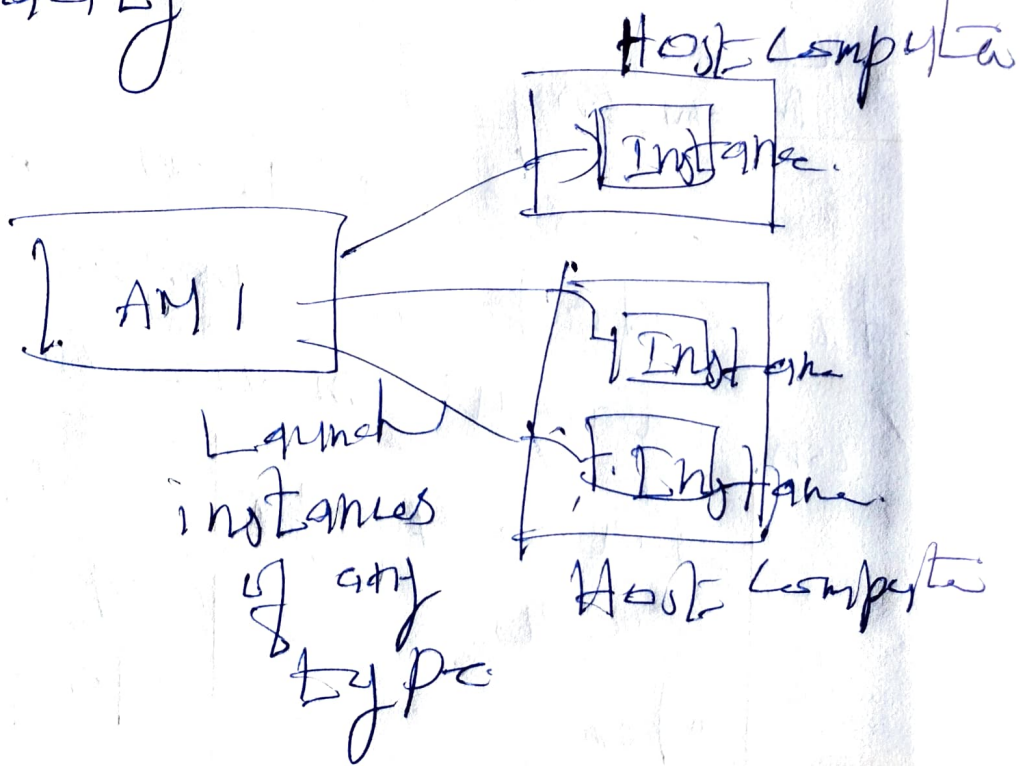 Host Computer
Instance.
AMI
Instan
Instance.
Launch
instances
of any
type
Host Computer